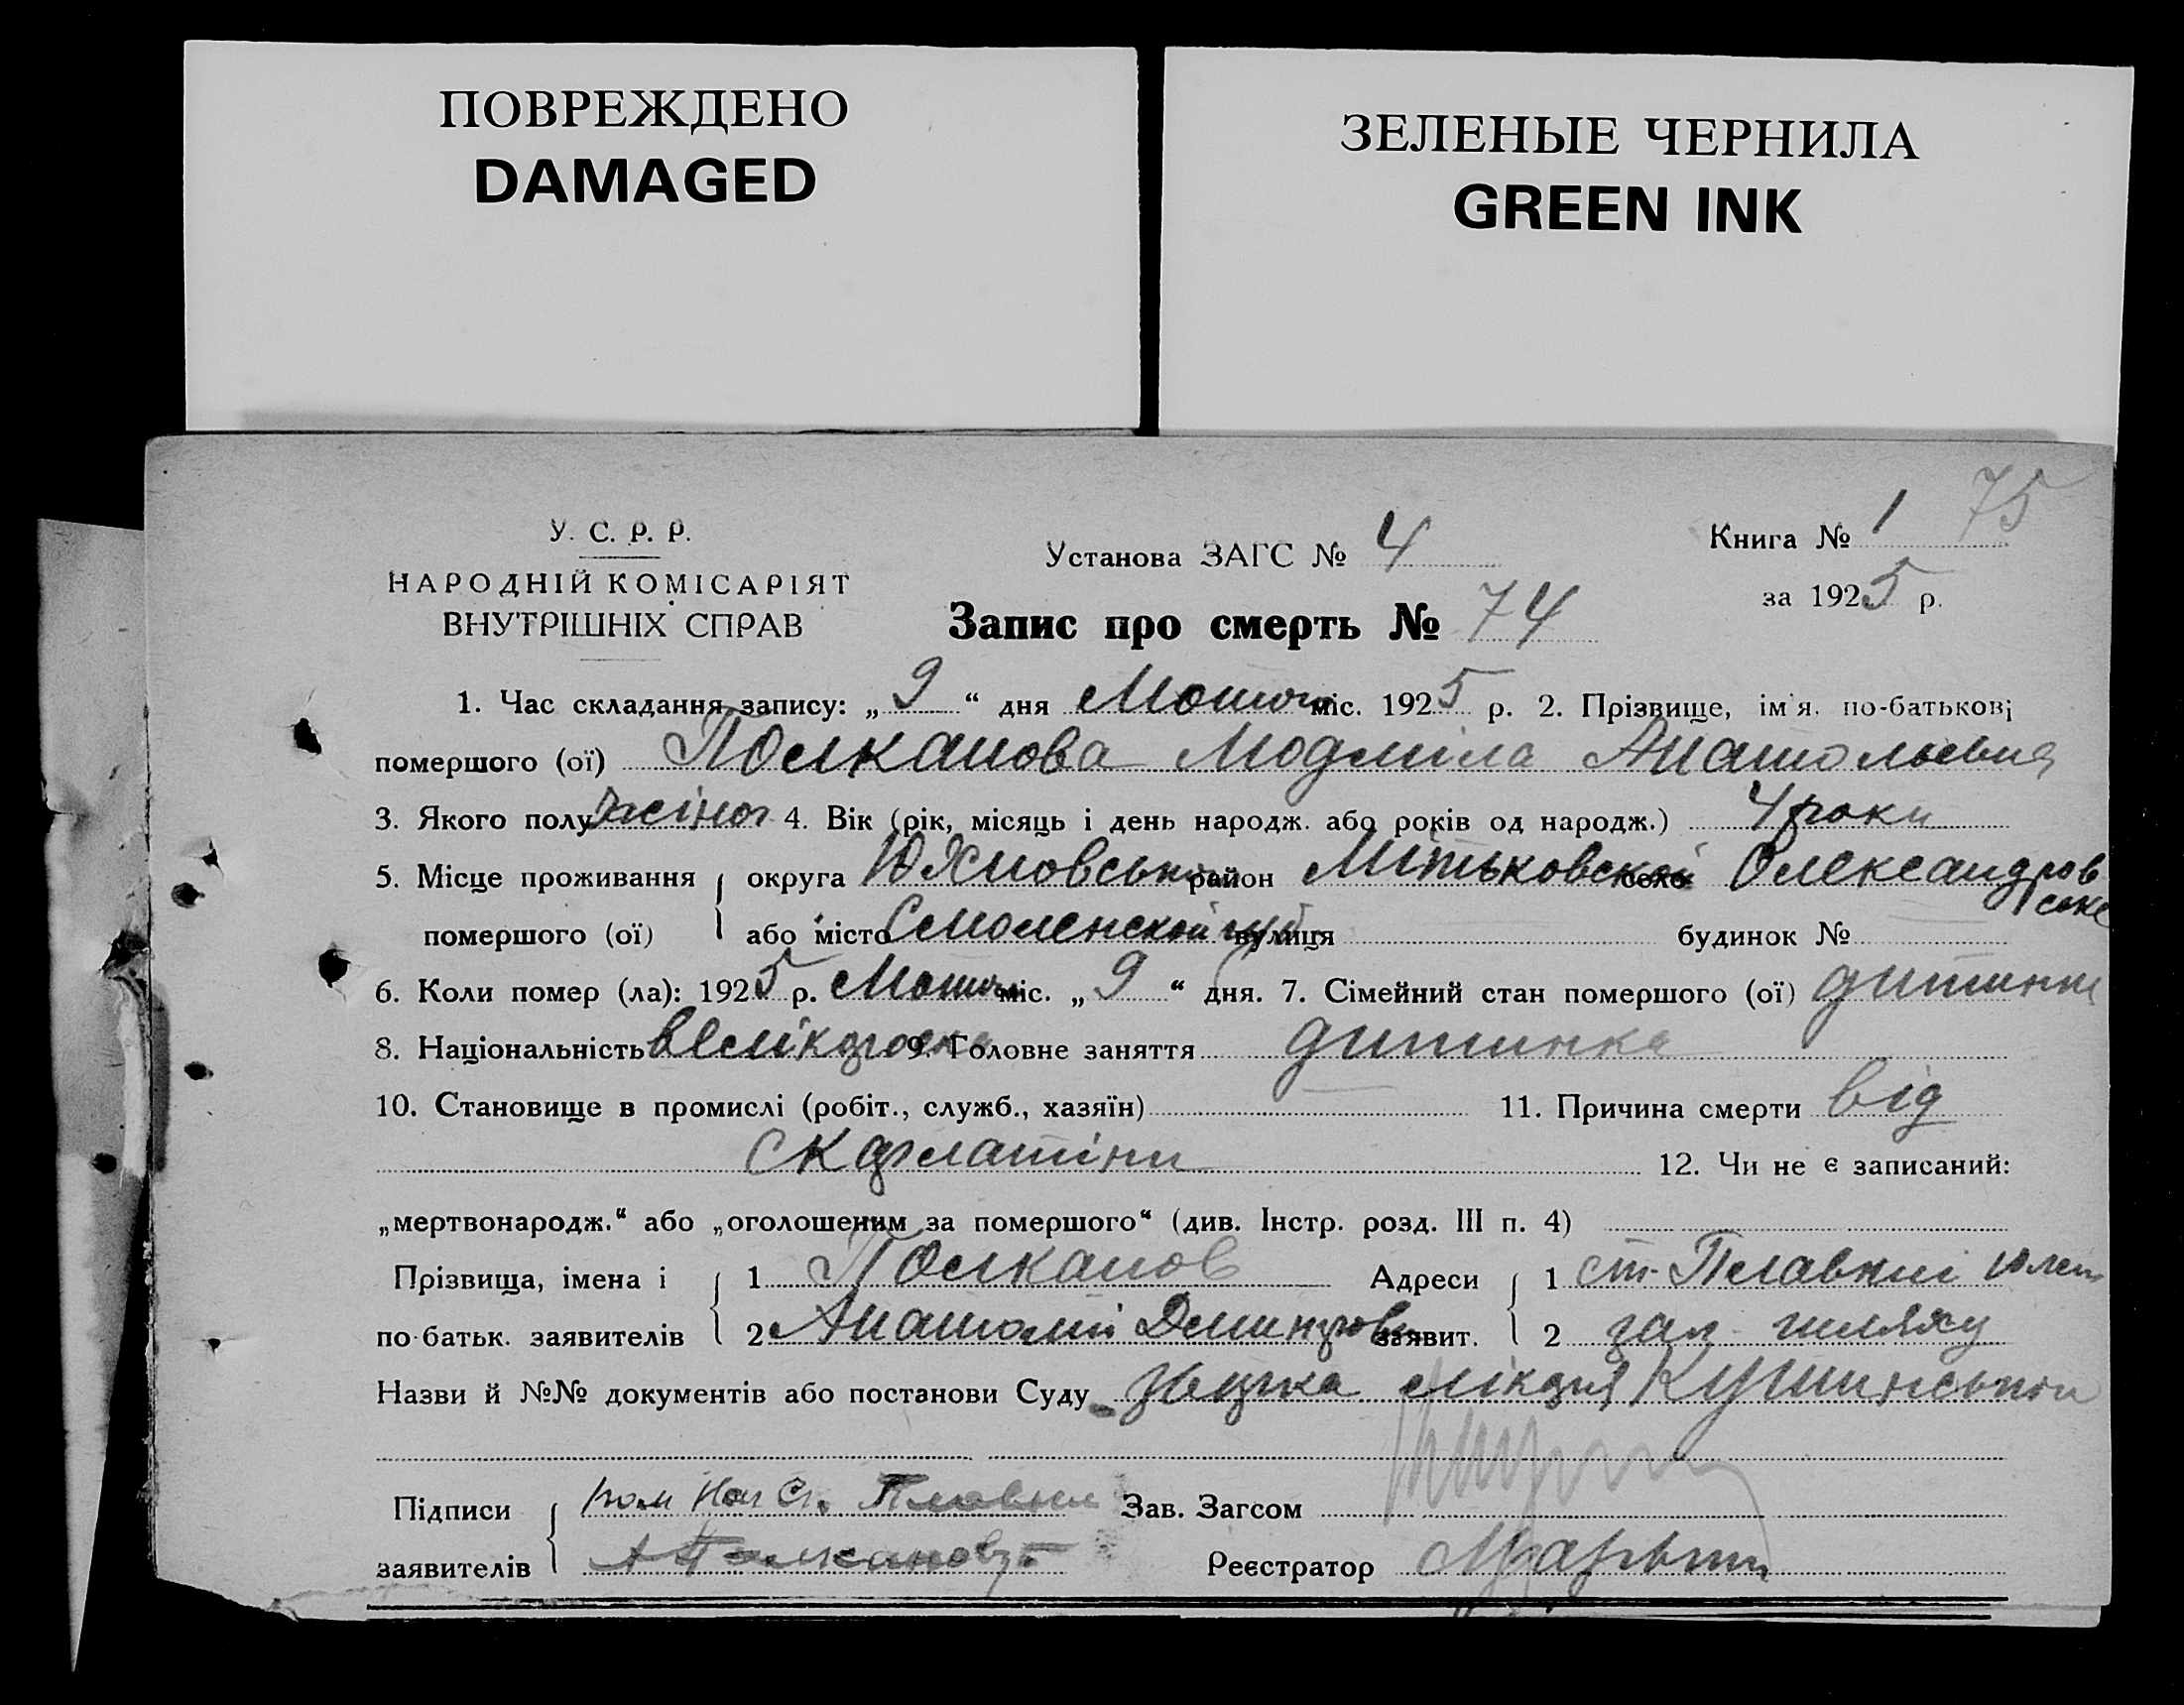 ПОВРЕЖДЕНО
DAMAGED
ЗЕЛЕНЫЕ ЧЕРНИЛА
GREEN INK
75
У. С. Р. Р.
НАРОДНІЙ КОМІСАРІЯТ
ВНУТРІШНІХ СПРАВ
Установа ЗАГС № 4
Книга № 1
за 1925 р.
Запис про смерть № 74
1. Час складання запису: „ 9 “ дня Лютого міс. 1925 р. 2. Прізвище, ім'я, по-батькові
помершого (ої) Полканова Людміла Анатольевна
3. Якого полу жіноч 4. Вік (рік, місяць і день народж. або років од народж.) 4 роки
5. Місце проживання округа Юхновський район Мітьковской село Олександров
ске
помершого (ої) або місто Смоленской губ вулиця будинок №
6. Коли помер (ла): 1925 р. Лютого міс. „ 9 “ дня. 7. Сімейний стан помершого (ої) дитинка
8. Національність велікороска 9. Головне заняття дитинка
10. Становище в промислі (робіт., служб., хазяїн) 11. Причина смерти від
скарлатіни 12. Чи не є записаний:
„мертвонародж.“ або „оголошеним за помершого“ (див. Інстр. розд. III п. 4)
Прізвища, імена і 1 Полканов Адреси 1 ст. Плавни
по-батьк. заявителів 2 Анатолій заявит. 2 зал. шляху
Назви й №№ документів або постанови Суду лікаря
Підписи Пом Нач Ст. Плавни Зав. Загсом
заявителів А Полканов Реєстратор